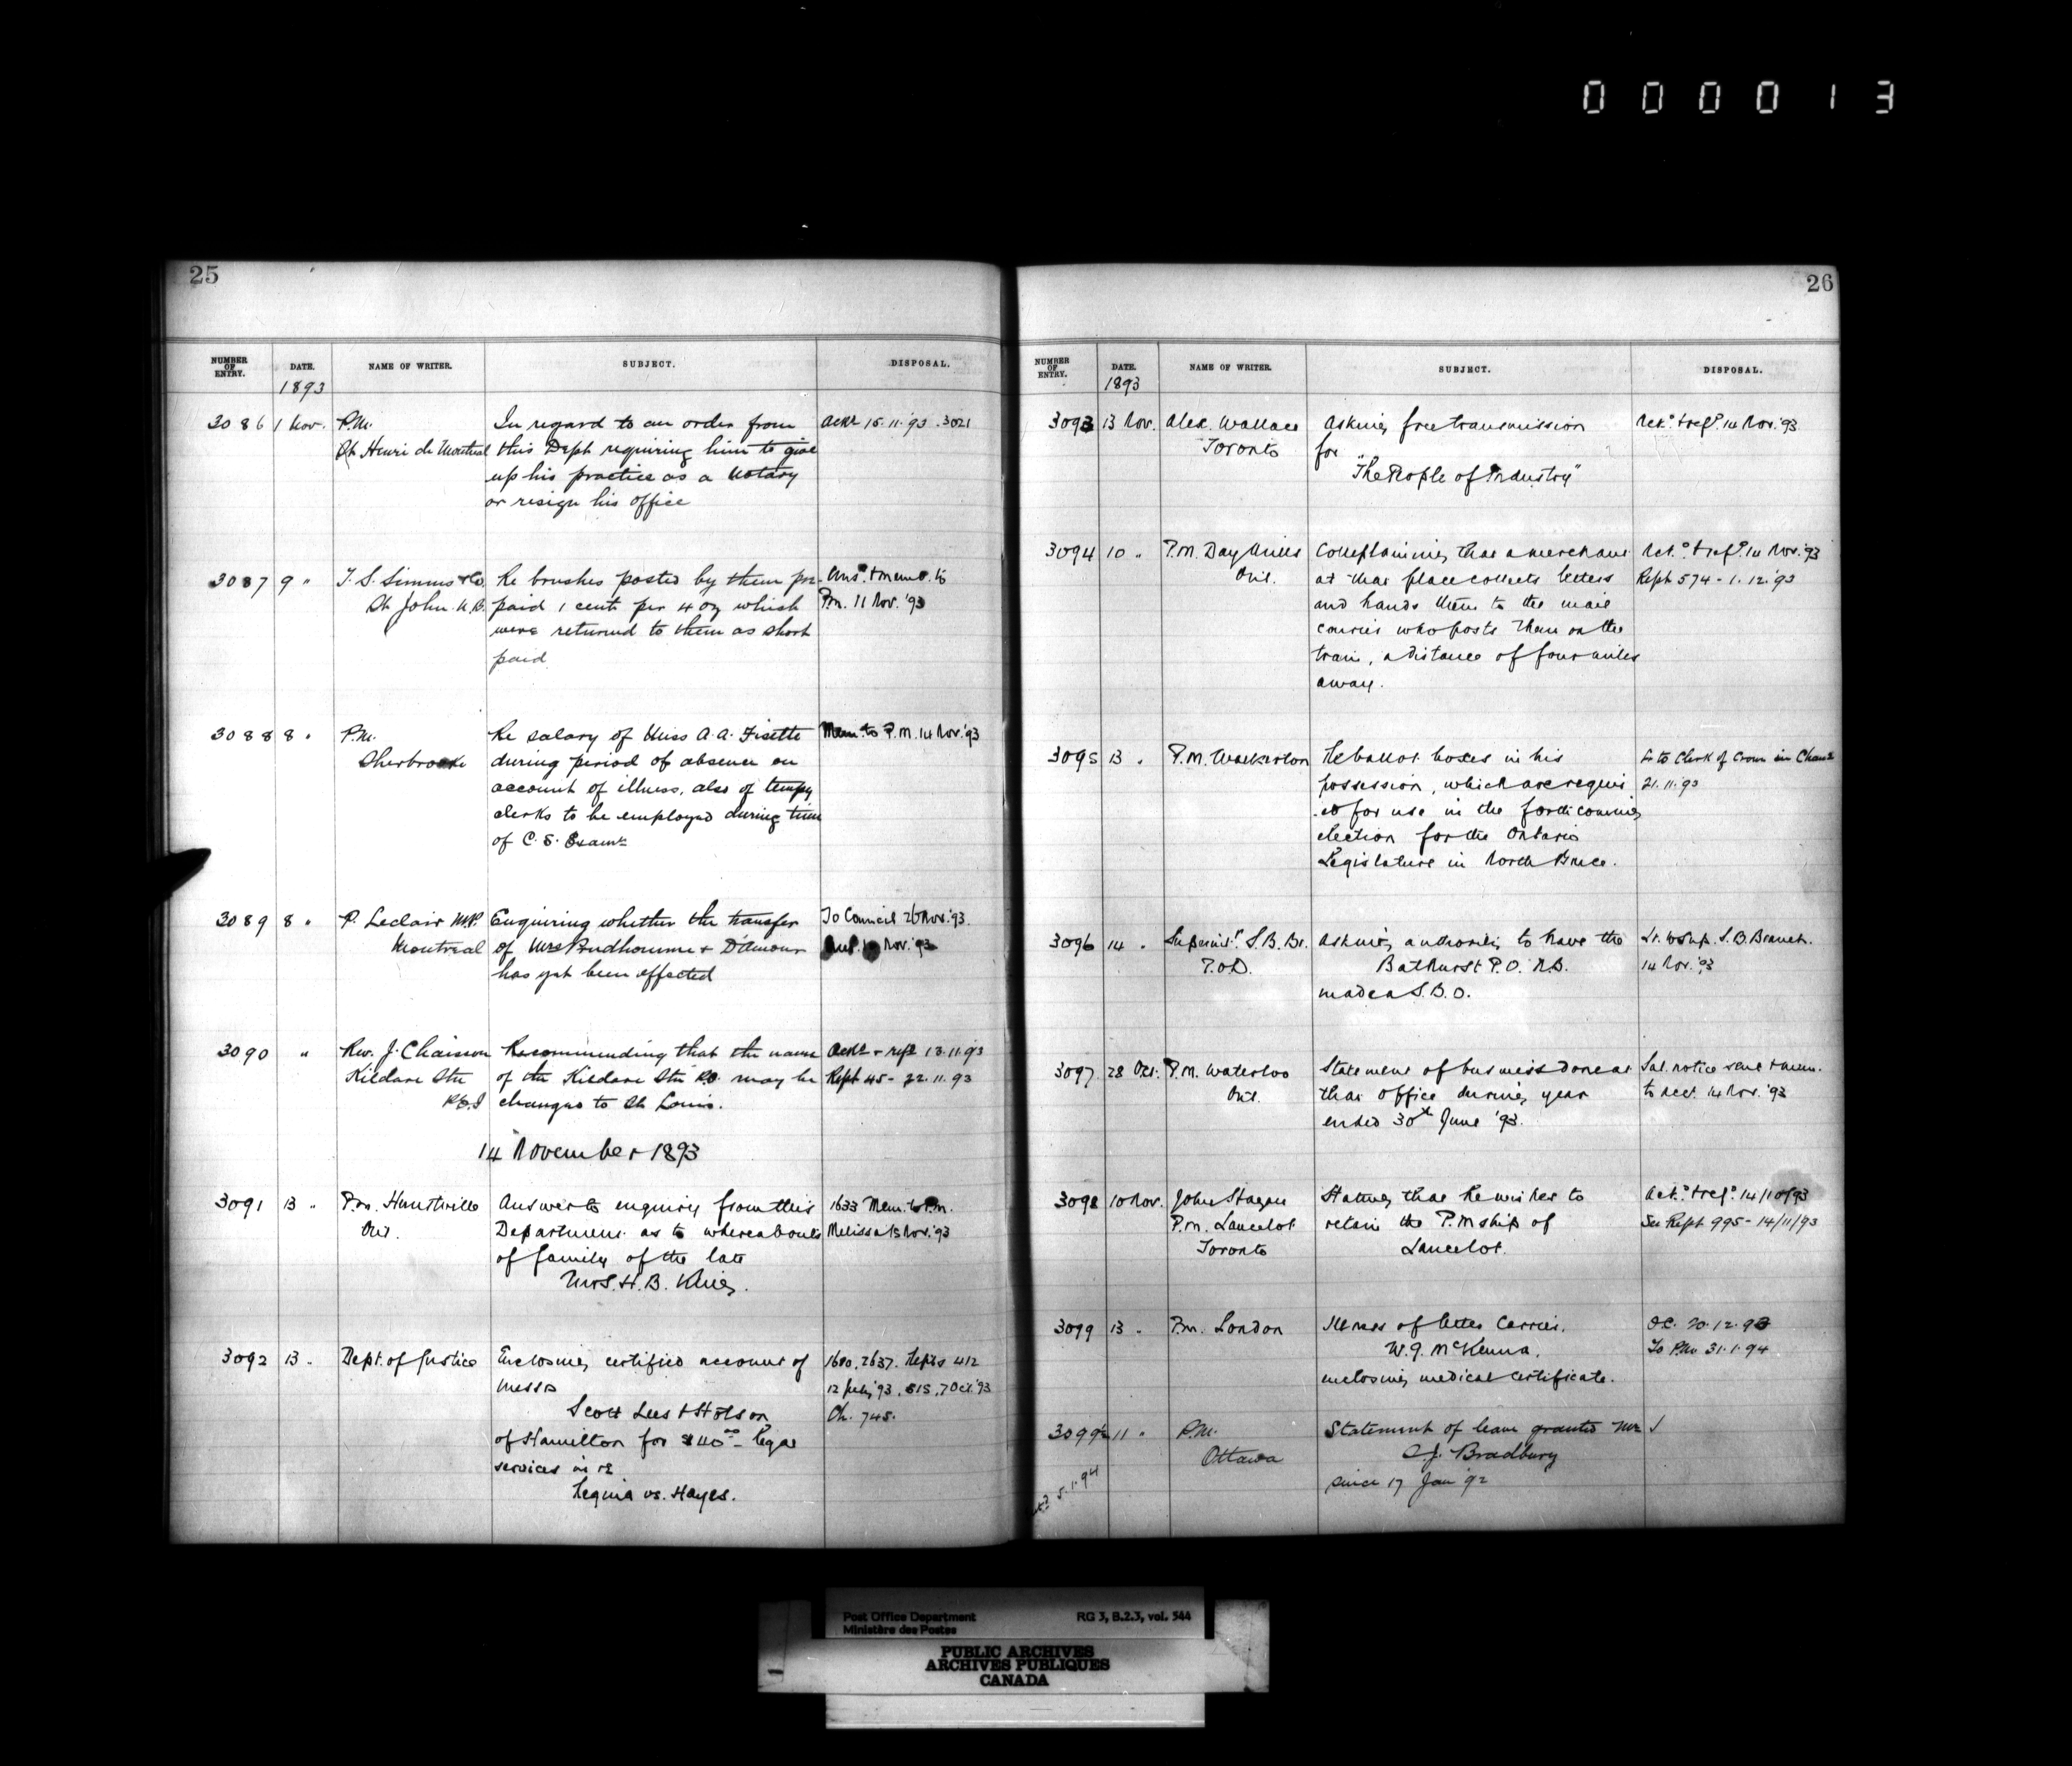 000013
25
NUMBER OF ENTRY. DATE. NAME OF WRITER. SUBJECT. DISPOSAL.
1893
3086 1 Nov. P.M. In regard to an order from Ackd 15.11.93.3021
St Henri de Montreal this Dept requiring him to give
up his practice as a Notary
or resign his office
3087 9 " T. S. Simms & Co. Re brushes posted by them pre- Ansd. + memo. to
St John N.B. paid 1 cent per 4 oz which P.M. 11 Nov. '93
were returned to them as short
paid
3088 8 " P.M. Re salary of Miss A. A. Fisette Mem. to P.M. 14 Nov. '93
Sherbrooke during period of absence on
account of illness, also of tempy
clerks to be employed during time
of C. S. Exams
3089 8 " P. Leclair M.P. Enquiring whether the transfer To Council 26 Nov. '93.
Montreal of Mrs Prudhomme & D'Amour Nov. '93
has yet been effected
3090 " Rev. J. Chaisson Recommending that the name Ackd + refd 13.11.93
Kildare Stn of the Kildare Stn P.O. may be Rept 45 - 22.11.93
P.E.I changed to St Louis.
14 November 1893
3091 13 " P.M. Huntsville Answer to enquiry from this 1633 Mem. to P.M.
Ont. Department as to whereabouts Melissa 15 Nov. '93
of family of the late
Mrs. H. B. King.
3092 13 " Dept. of Justice Enclosing certified account of 1680, 2637. Repts 412
Messrs 12 July '93, 815, 7 Oct. '93
Scott Lees & Hobson Ch. 745.
of Hamilton for $40.00 - legal
services in re
Regina vs. Hayes.
26
NUMBER OF ENTRY. DATE. NAME OF WRITER. SUBJECT. DISPOSAL.
1893
3093 13 Nov. Alex. Wallace Asking free transmission Ack.d + ref.d 14 Nov. '93
Toronto for
"The People of Industry"
3094 10 " P.M. Day Mills Complaining that a merchant Ack.d + ref.d 14 Nov. '93
Ont. at that place collects letters Rept 574 - 1.12.93
and hands them to the mail
courier who posts them on the
train, a distance of four miles
away.
3095 13 " P.M. Walkerton Re ballot boxes in his Lr to Clerk of Crown in Chanc
possession, which are requir 21.11.93
ed for use in the forthcoming
election for the Ontario
Legislature in North Bruce.
3096 14 " Superint. S. B. Br. Asking authority to have the Lr. to Sup. S. B. Branch.
P.O.D. Bathurst P.O. N.B. 14 Nov. '93
made a S. B. O.
3097 28 Oct. P.M. Waterloo Statement of business done at Sal. notice sent + mem.
Ont. that office during year to Acct. 14 Nov. '93
ended 30th June '93.
3098 10 Nov. John Hagan Stating that he wishes to Ack.d + ref.d 14/11/93
P.M. Lancelot retain the P.M.ship of See Rept 995 - 14/11/93
Toronto Lancelot.
3099 13 " P.M. London Illness of letter Carrier, O.C. 20.12.93
W. J. McKenna, To P.M. 31.1.94
enclosing medical certificate.
3099½ 11 " P.M. Statement of leave granted Mr
Ottawa C. J. Bradbury
since 17 Jan '92
5.1.94
Post Office Department RG 3, B.2.3, vol. 544
Ministère des Postes
PUBLIC ARCHIVES
ARCHIVES PUBLIQUES
CANADA